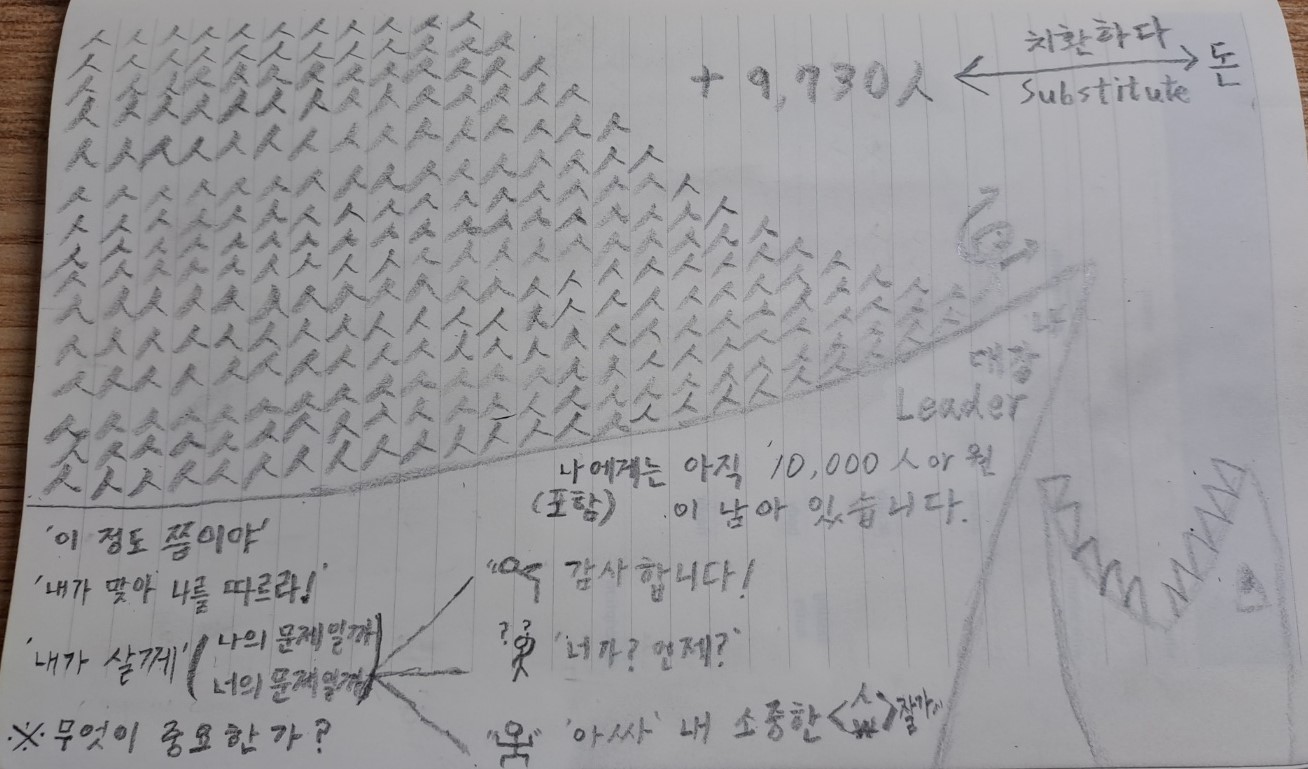 치환하다
+ 9,730人 돈
Substitute
나
대장
Leader
나에게는 아직 10,000人 or 원
(포함) 이 남아 있습니다.
'이 정도 쯤이야'
'내가 맞아 나를 따르라!'
'내가 살께' (나의 문제일까
너의 문제일까)
※ 무엇이 중요한가?
감사합니다!
?? '너가? 언제?'
'아싸' 내 소중한 잘가